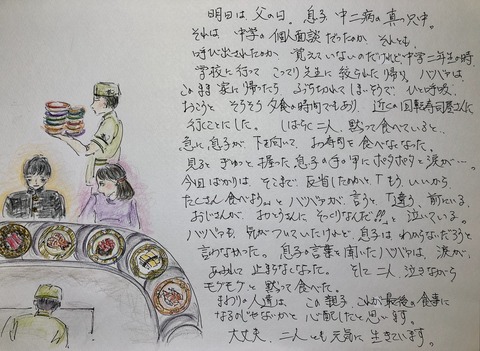 明日は、父の日。息子 中二病の真っ只中。
それは 中学の個人面談だったのか それとも、
呼び出されたのか 覚えていないのだけれど 中学二年生の時、
学校に行って こってり先生に絞られた帰り、ハハハは
このまま 家に帰ったら、ぶちきれてしまいそうで ひと呼吸
おこうと そろそろ 夕食の時間でもあり、近くの回転寿司屋さんに
行くことにした。 しばらく二人、黙って食べていると、
急に息子が 下を向いて、お寿司を食べなくなった。
見ると ぎゅっと握った息子の手の甲にポタポタと涙が…。
今回ばかりは、そこまで 反省したのかと「もう、いいから
たくさん食べよう。」と ハハハが、言うと、「違う、前にいる、
おじさんが、おとうさんに そっくりなんだ!!」と 泣いている。
ハハハも、気がついていたけれど 息子は わからないだろうと
言わなかった。 息子の言葉を聞いたハハハは、涙が、
あふれて 止まらなくなった。 そして二人、泣きながら
モグモグと 黙って食べた。
まわりの人達は、この親子、これが最後の食事に
なるのじゃないかと 心配したと思います。
大丈夫、二人とも元気に 生きています。